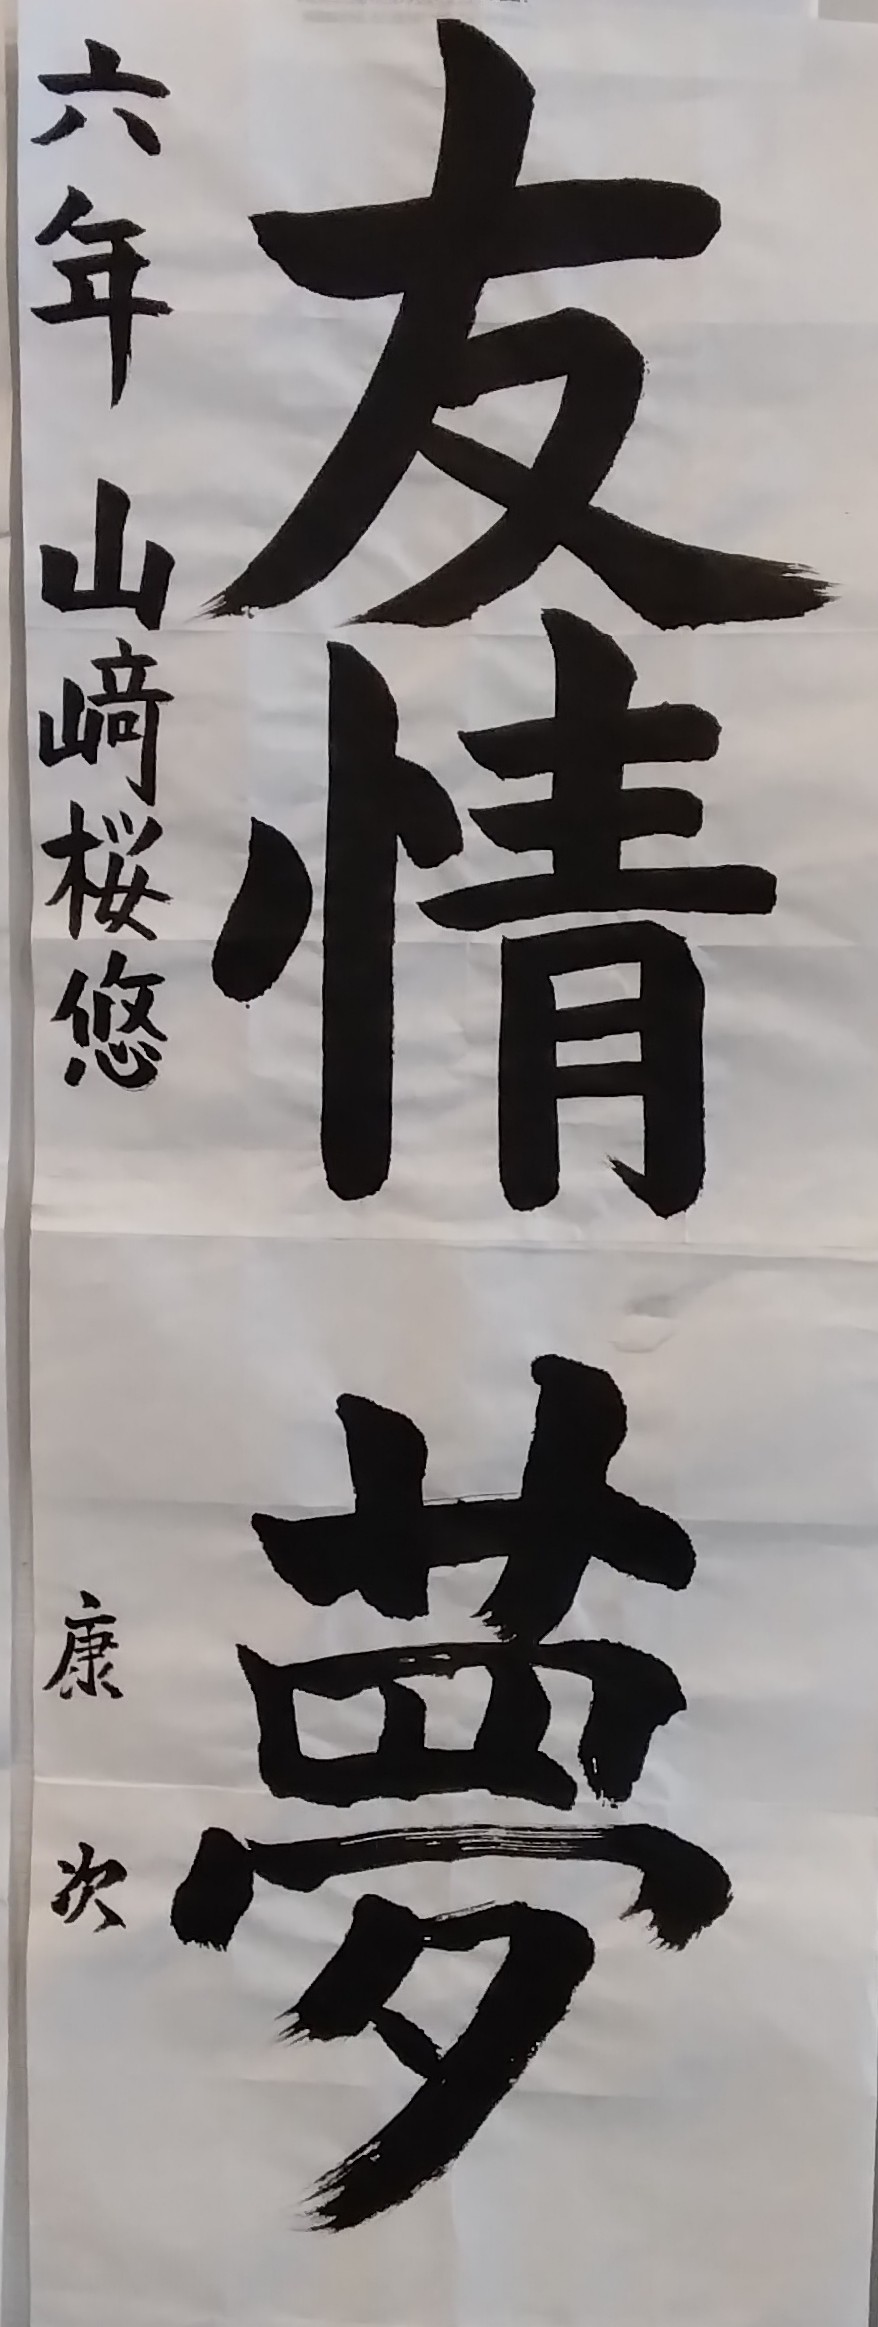 友情 夢
六年 山﨑桜悠
康 次